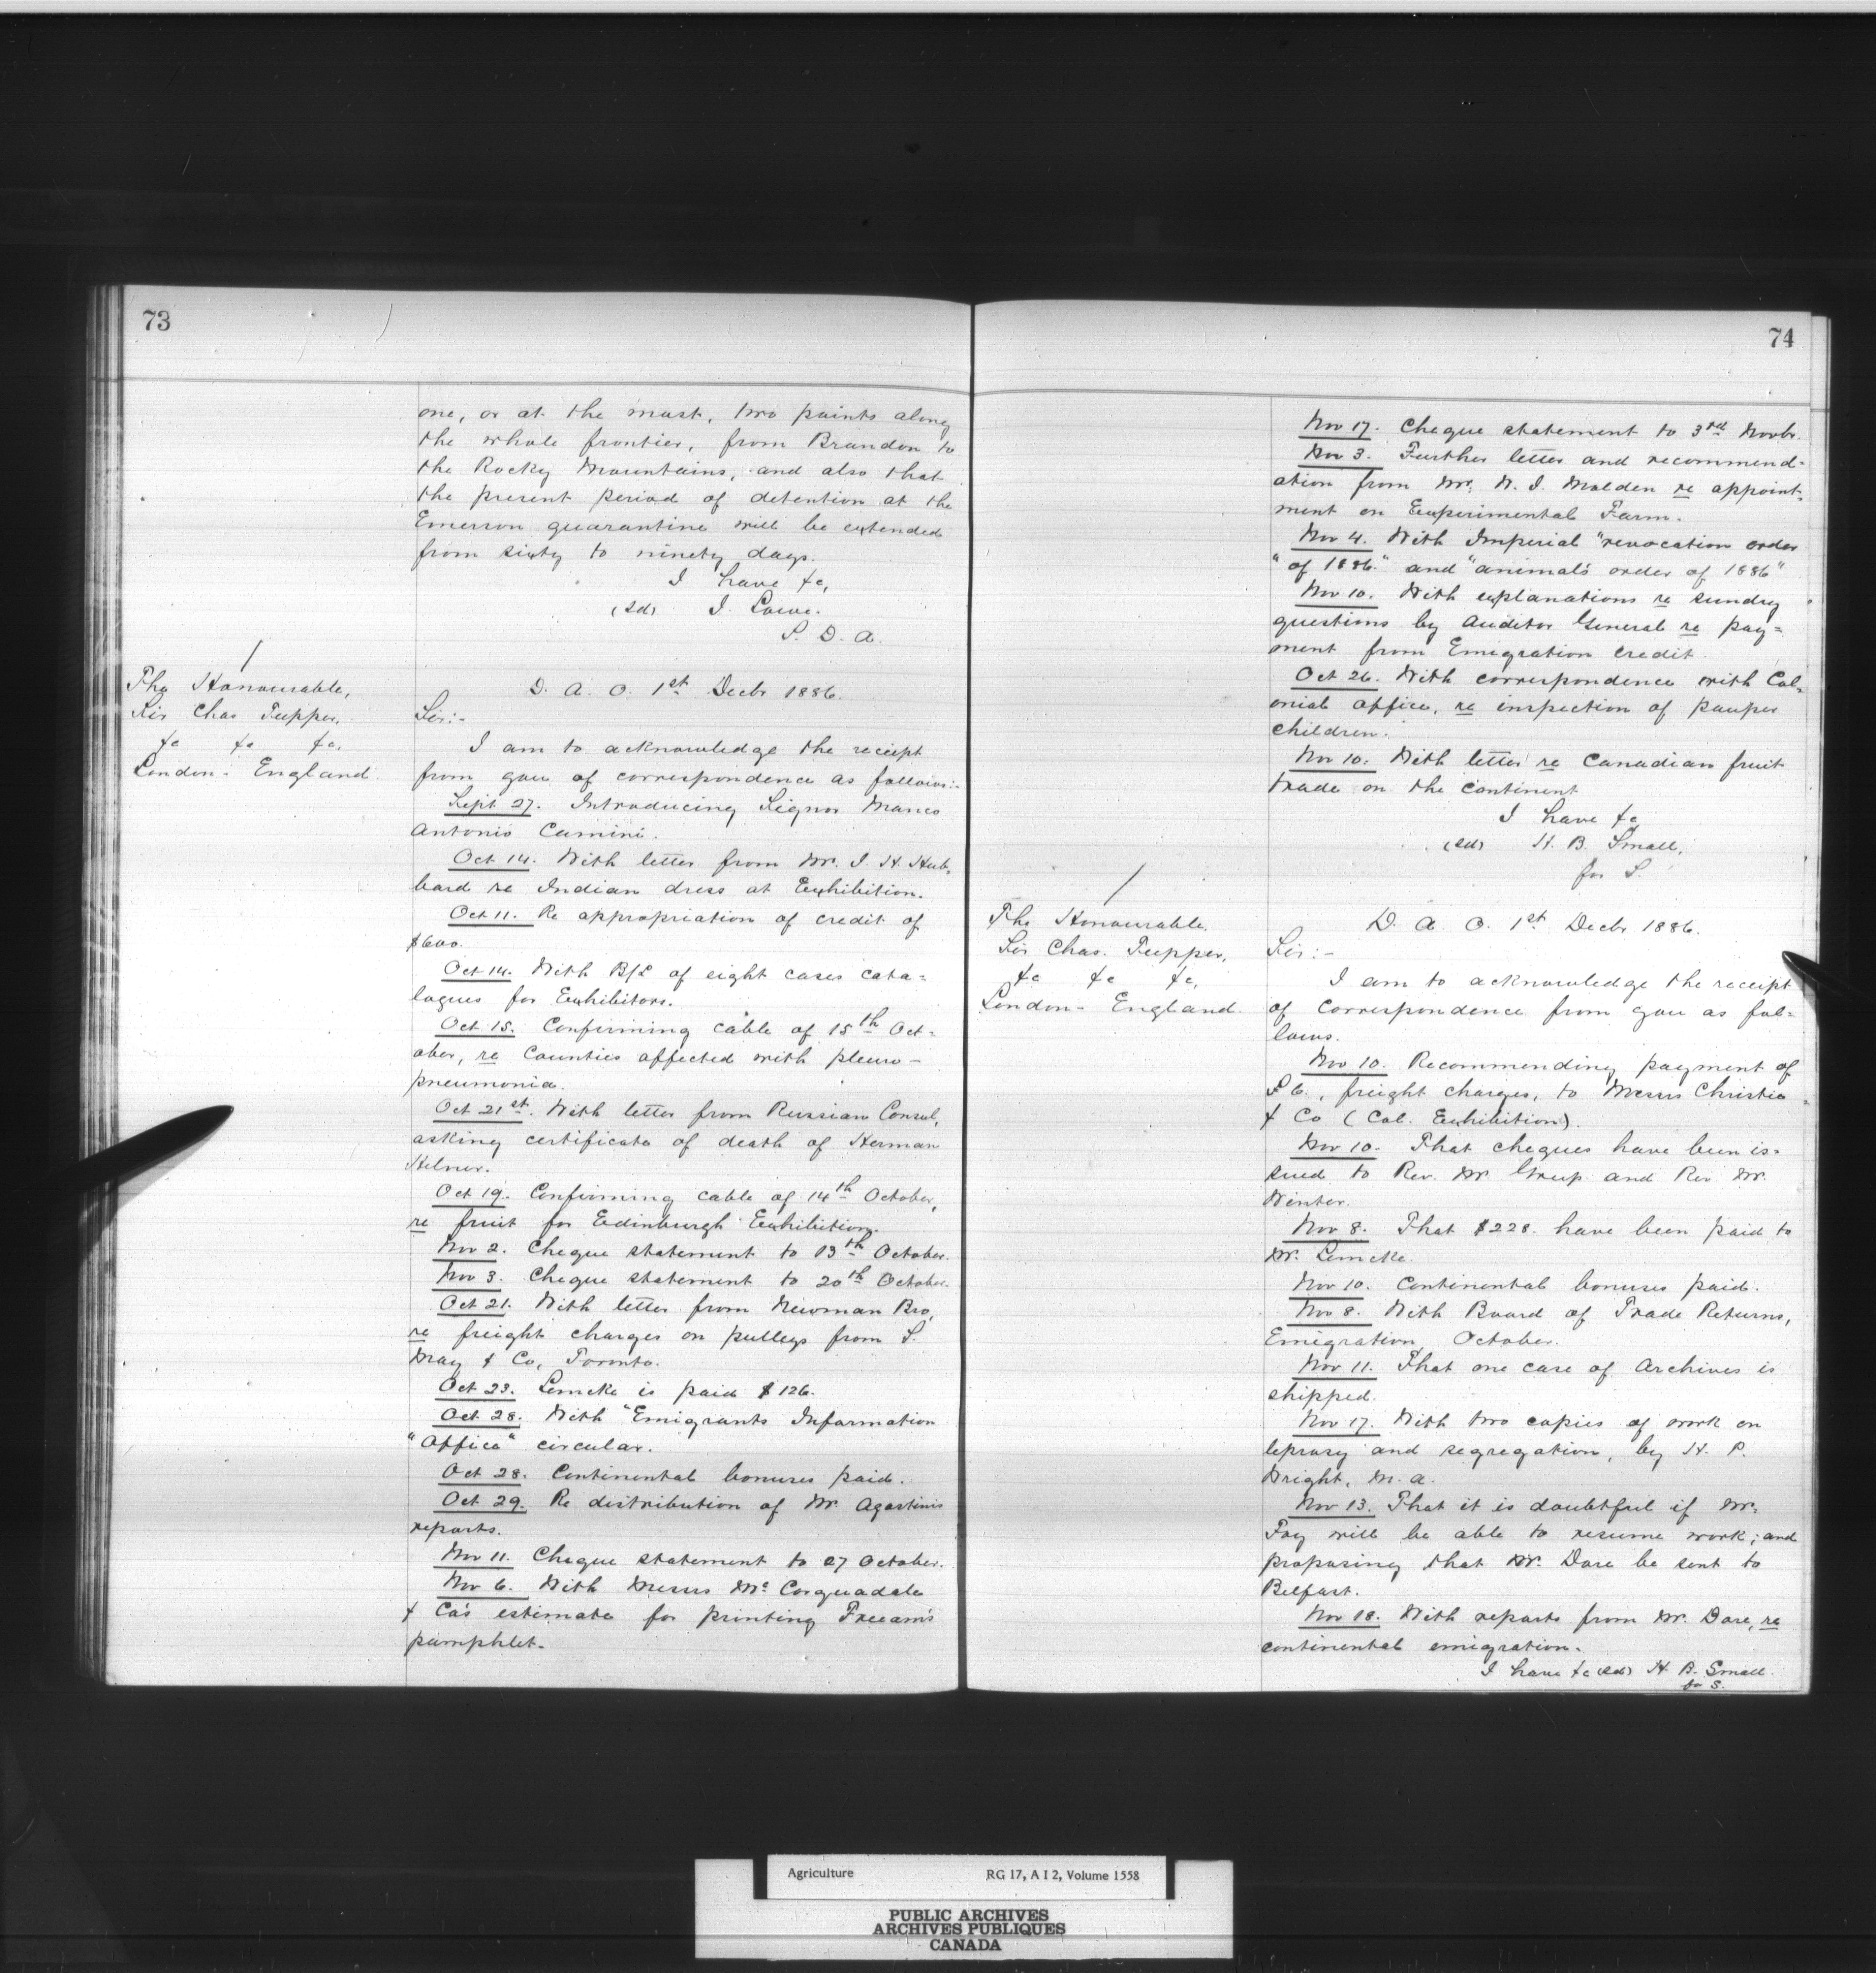 73
one, or at the most, two points along
the whole frontier, from Brandon to
the Rocky Mountains, and also that
the present period of detention at the
Emerson quarantine will be extended
from sixty to ninety days.
I have &c,
(Sd) J. Lowe.
S. D. A.
The Honourable,
Sir Chas Tupper,
&c &c &c,
London - England.
D. A. O. 1st Decbr 1886.
Sir:-
I am to acknowledge the receipt
from you of correspondence as follows:-
Sept 27. Introducing Signor Marco
Antonio Camini.
Oct 14. With letter from Mr. J. H. Hub-
bard re Indian dress at Exhibition.
Oct 11. Re appropriation of credit of
$600.
Oct 14. With B/L of eight cases cata-
logues for Exhibitors.
Oct 15. Confirming cable of 15th Oct-
ober, re Counties affected with pleuro-
pneumonia.
Oct 21st. With letter from Russian Consul,
asking certificate of death of Herman
Hilner.
Oct 19. Confirming cable of 14th October,
re fruit for Edinburgh Exhibition.
Nov 2. Cheque statement to 13th October.
Nov 3. Cheque statement to 20th October.
Oct 21. With letter from Newman Bro,
re freight charges on pulleys from S.
May & Co, Toronto.
Oct 23. Lemcke is paid $126.
Oct 28. With "Emigrants Information
"Office" circular.
Oct 28. Continental bonuses paid.
Oct 29. Re distribution of Mr. Agostinis
reports.
Nov 11. Cheque statement to 27 October.
Nov 6. With Messrs Mc Corquadale
& Co's estimate for printing Fream's
pamphlet.
74
Nov 17. Cheque statement to 3rd Novbr.
Nov 3. Further letter and recommend-
ation from Mr. W. J. Malden re appoint-
ment on Experimental Farm.
Nov 4. With Imperial "revocation order
"of 1886." and "animals order of 1886"
Nov 10. With explanations re sundry
questions by Auditor General re pay-
ment from Emigration Credit.
Oct 26. With correspondence with Col-
onial Office, re inspection of pauper
children.
Nov 10. With letter re Canadian fruit
trade on the continent
I have &c
(Sd) H. B. Small,
for S.
The Honourable.
Sir Chas. Tupper,
&c &c &c,
London - England.
D. A. O. 1st Decbr 1886.
Sir:-
I am to acknowledge the receipt
of correspondence from you as fol-
lows.
Nov 10. Recommending payment of
£6., freight charges, to Messrs Christie
& Co (Col. Exhibition).
Nov 10. That cheques have been is-
sued to Rev. Mr and Rev Mr.
Winter.
Nov 8. That $228. have been paid to
Mr. Lemcke.
Nov 10. Continental bonuses paid.
Nov 8. With Board of Trade Returns,
Emigration, October.
Nov 11. That one case of Archives is
shipped.
Nov 17. With two copies of work on
leprosy and segregation, by H. P.
Wright, M. A.
Nov 13. That it is doubtful if Mr.
Foy will be able to resume work; and
proposing that Mr. Dore be sent to
Belfast.
Nov 18. With reports from Mr. Dore, re
continental emigration.
I have &c (Sd) H. B. Small
for S.
Agriculture RG 17, A I 2, Volume 1558
PUBLIC ARCHIVES
ARCHIVES PUBLIQUES
CANADA